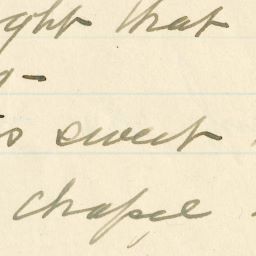 ght that
sweet
chapel